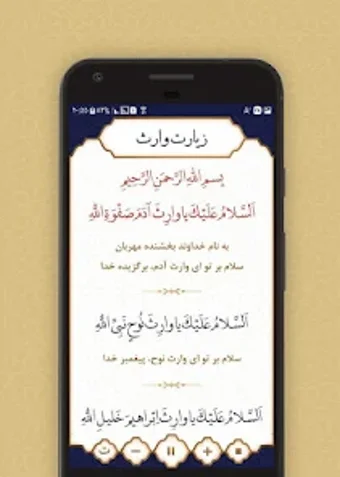 زیارت وارث
بِسْمِ اللهِ الرَّحْمَنِ الرَّحِيمِ
اَلسَّلامُ عَلَيْكَ يا وارِثَ آدَمَ صَفْوَةِ اللهِ
به نام خداوند بخشنده مهربان
سلام بر تو ای وارث آدم، برگزیده خدا
اَلسَّلامُ عَلَيْكَ يا وارِثَ نُوحٍ نَبِيِّ اللهِ
سلام بر تو ای وارث نوح، پیغمبر خدا
اَلسَّلامُ عَلَيْكَ يا وارِثَ اِبْراهيمَ خَليلِ اللهِ